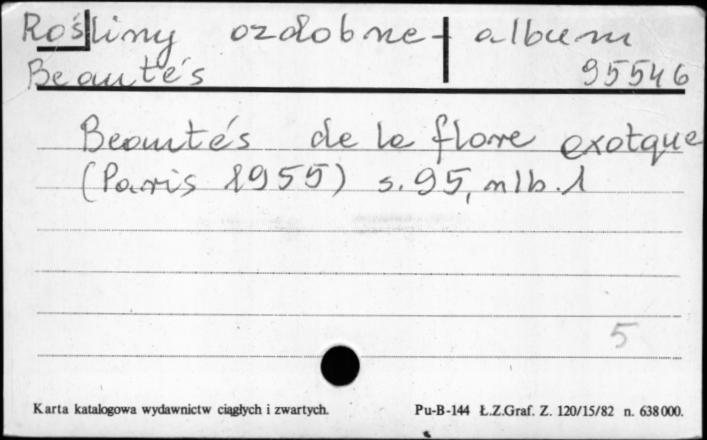 Rośliny ozdobne - album
Beautés 95546
Beautés de la flore exotque
(Paris 1955) s. 95, nlb. 1
5
Karta katalogowa wydawnictw ciągłych i zwartych. Pu-B-144 Ł.Z.Graf. Z. 120/15/82 n. 638000.